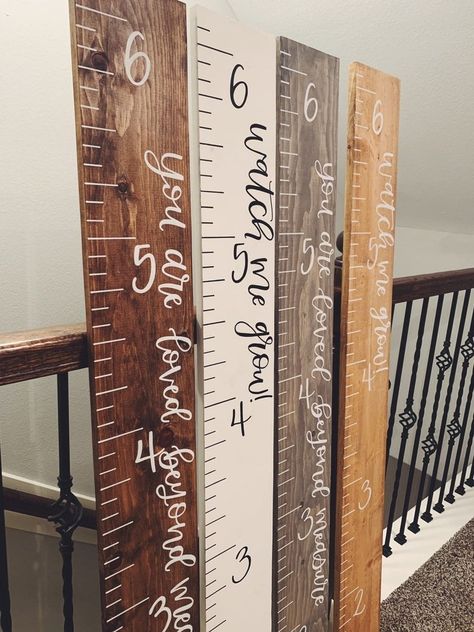 6
5
4
3
you are loved beyond measure
6
5
4
3
watch me grow!
6
5
4
3
you are loved beyond measure
6
5
4
3
2
watch me grow!